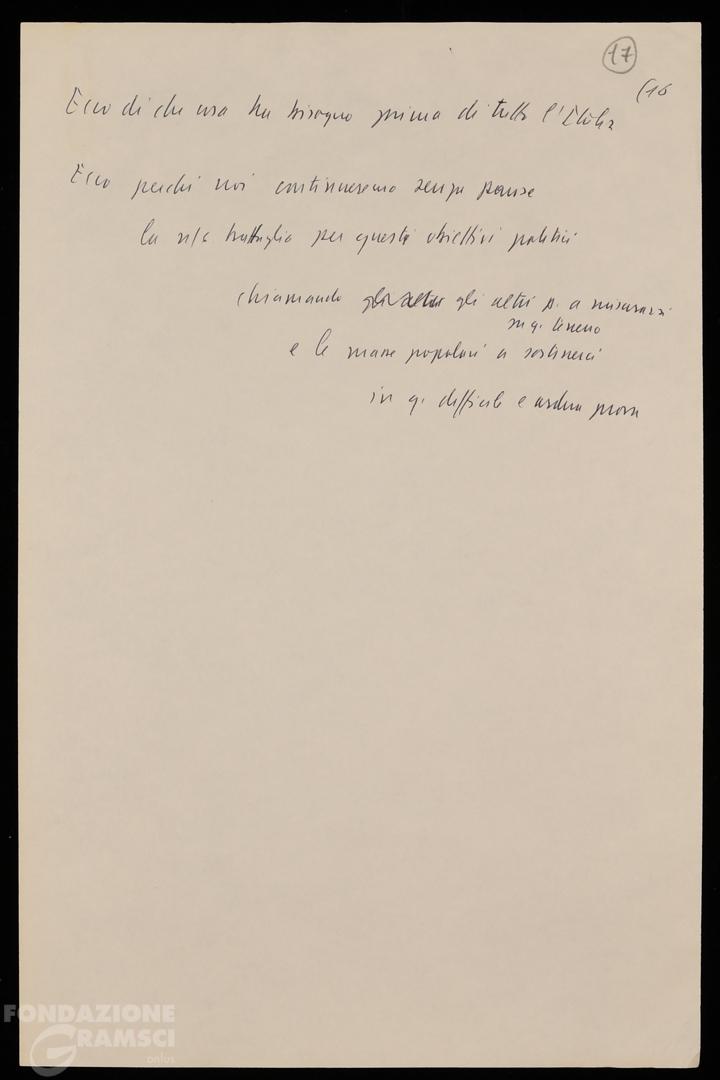 17
(16
Ecco di che cosa ha bisogno prima di tutto l'Italia
Ecco perché noi continueremo senza pause
la n/s battaglia per questi obiettivi politici
chiamando gli altri gli altri p. a misurarsi
su q. terreno
e le masse popolari a sostenerci
in q. difficile e ardua prova
FONDAZIONE
GRAMSCI
onlus